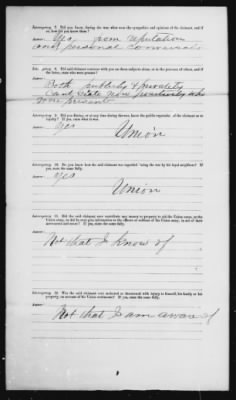 Interrogatory 7. Did you know, during the war what were the sympathies and opinions of the claimant, and if
so, how did you know them?
Answer: Yes, from reputation
and personal conversation
Interrogatory 8. Did said claimant converse with you on these subjects alone, or in the presence of others, and if
the latter, state who were present?
Answer: Both publicly & privately
Cant state now positively who
were present
Interrogatory 9. Did you during, or at any time during the war, know the public reputation of the claimant as to
loyalty? If yea, state what it was.
Answer: Yes
Union
Interrogatory 10. Do you know how the said claimant was regarded during the war by his loyal neighbors? If
yea, state the same fully.
Answer: Yes
Union
Interrogatory 11. Did the said claimant ever contribute any money or property to aid the Union army, or the
Union cause, or did he ever give information to the officers or soldiers of the Union army, in aid of their
movements and cause? If yea, state the same fully.
Answer:
Not that I know of
Interrogatory 12. Was the said claimant ever molested or threatened with injury to himself, his family or his
property, on account of his Union sentiments? If yea, state the same fully.
Answer:
Not that I am aware of